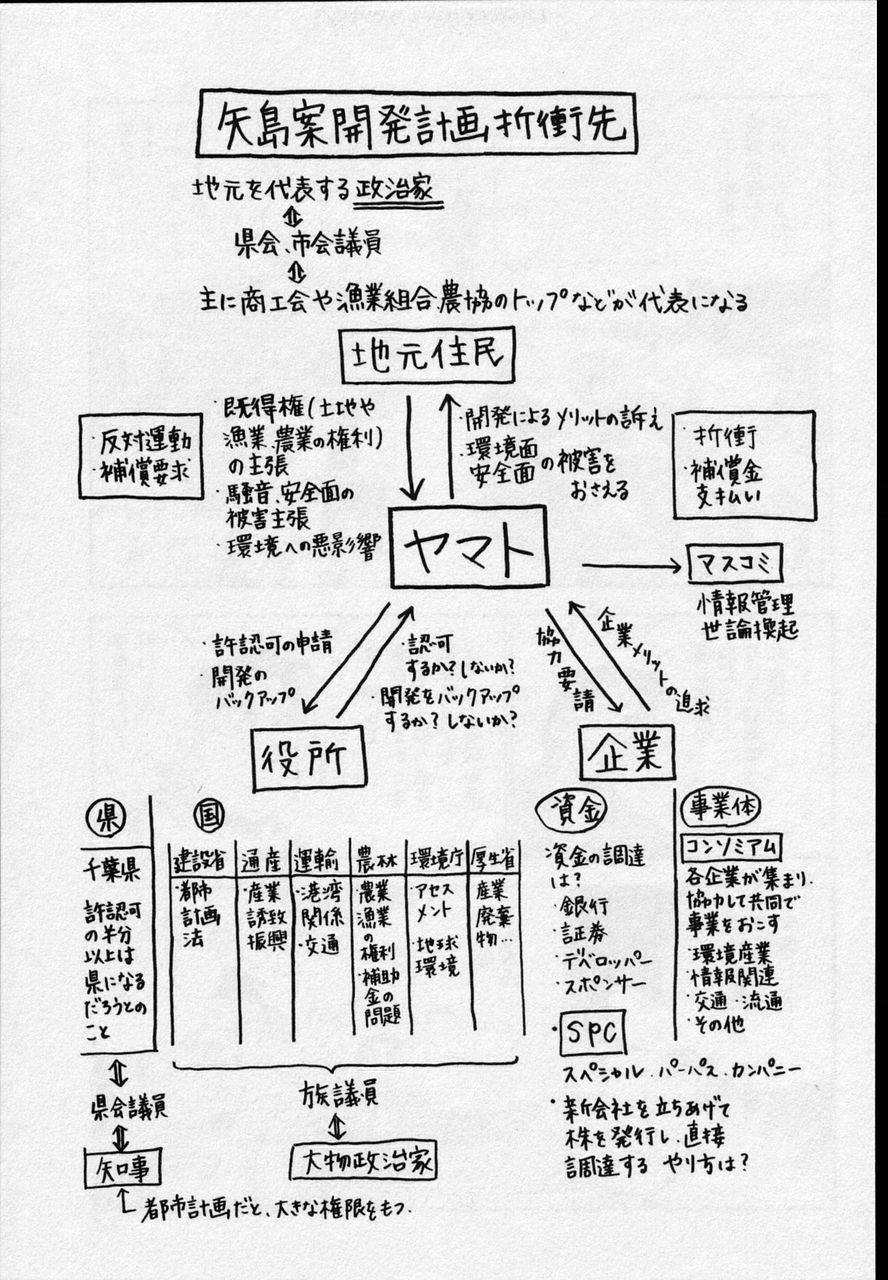 矢島案開発計画折衝先
地元を代表する政治家
県会、市会議員
主に商工会や漁業組合農協のトップなどが代表になる
地元住民
・反対運動
・補償要求
・既得権(土地や
漁業、農業の権利)
の主張
・騒音、安全面の
被害主張
・環境への悪影響
・開発によるメリットの訴え
・環境面
安全面の被害を
おさえる
・折衝
・補償金
支払い
ヤマト
マスコミ
情報管理
世論換起
・許認可の申請
・開発の
バックアップ
・認可
するか?しないか?
・開発をバックアップ
するか?しないか?
協力要請
企業メリットの追求
役所
企業
県
千葉県
許認可
の半分
以上は
県になる
だろうとの
こと
県会議員
知事
都市計画だと、大きな権限をもつ。
国
建設省
・都市
計画
法
通産
・産業
誘致
振興
運輸
・港湾
関係
・交通
農林
・農業
漁業
の権利
・補助
金の
問題
環境庁
・アセス
メント
・地球
環境
厚生省
・産業
廃棄
物…
族議員
大物政治家
資金
資金の調達
は?
・銀行
・証券
・デベロッパー
・スポンサー
・SPC
スペシャル・パーパス・カンパニー
・新会社を立ちあげて
株を発行し、直接
調達する やり方は?
事業体
コンソミアム
各企業が集まり、
協力して共同で
事業をおこす
・環境産業
・情報関連
・交通・流通
・その他